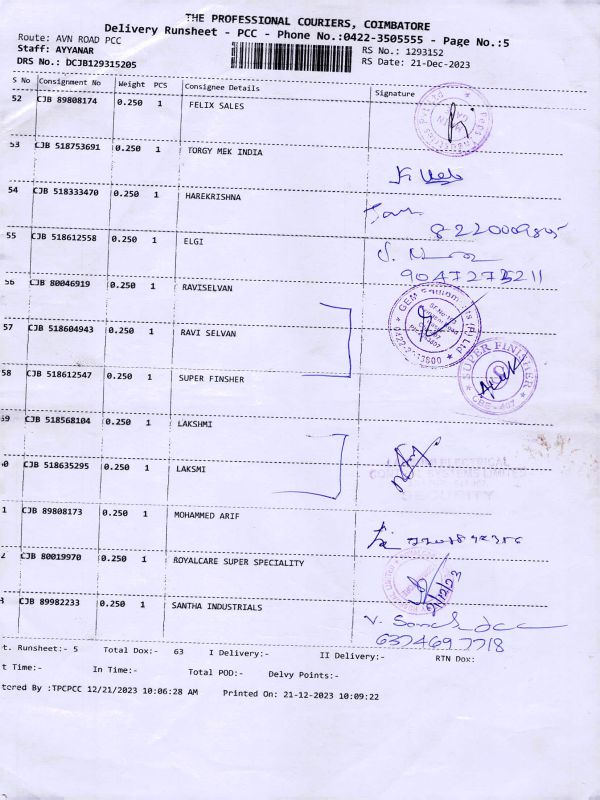 THE PROFESSIONAL COURIERS, COIMBATORE
Delivery Runsheet - PCC - Phone No.:0422-3505555 - Page No.:5
Route: AVN ROAD PCC
RS No.: 1293152
Staff: AYYANAR
RS Date: 21-Dec-2023
DRS No.: DCJB129315205
S No Consignment No Weight PCS Consignee Details Signature
52 CJB 89808174 0.250 1 FELIX SALES
53 CJB 518753691 0.250 1 TORGY MEK INDIA
54 CJB 518333470 0.250 1 HAREKRISHNA
8220009805
55 CJB 518612558 0.250 1 ELGI
56 CJB 80046919 0.250 1 RAVISELVAN
GEM Equipments (P) Ltd
57 CJB 518604943 0.250 1 RAVI SELVAN
58 CJB 518612547 0.250 1 SUPER FINSHER
SUPER FINISHER
CBE - 407
59 CJB 518568104 0.250 1 LAKSHMI
0 CJB 518635295 0.250 1 LAKSMI
SECURITY
1 CJB 89808173 0.250 1 MOHAMMED ARIF
2 CJB 80019970 0.250 1 ROYALCARE SUPER SPECIALITY
21/12/23
3 CJB 89982233 0.250 1 SANTHA INDUSTRIALS
637469 7718
t. Runsheet:- 5 Total Dox:- 63 I Delivery:- II Delivery:- RTN Dox:
t Time:- In Time:- Total POD:- Delvy Points:-
tered By :TPCPCC 12/21/2023 10:06:28 AM Printed On: 21-12-2023 10:09:22